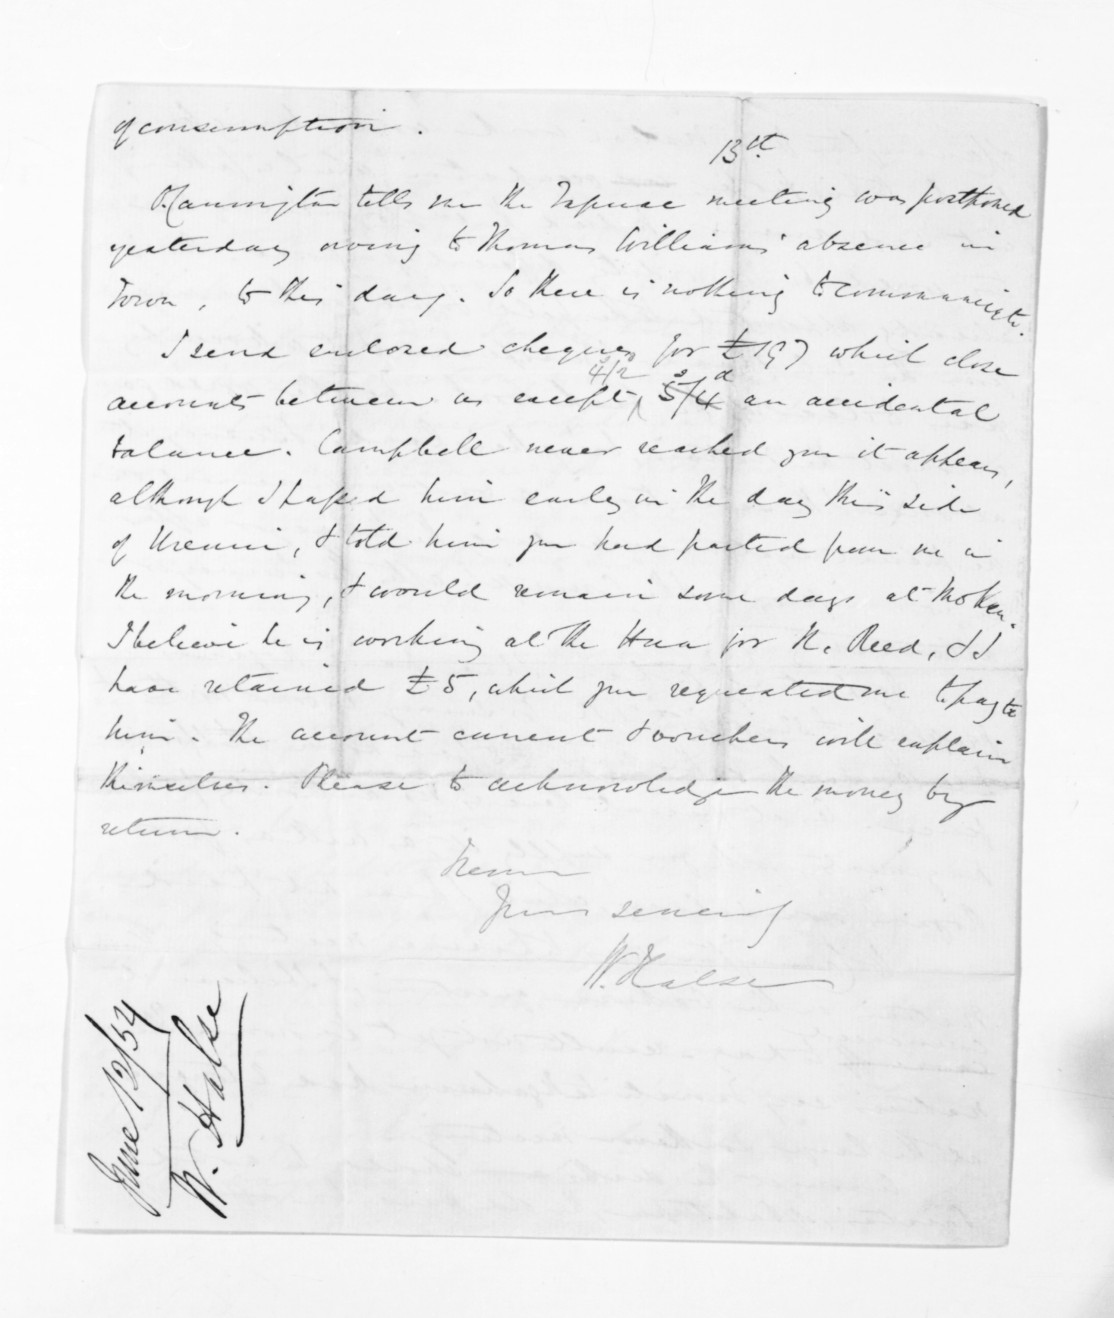 of consumption.
13th
Hannington tells me the Tapuae meeting was postponed
yesterday owing to Thomas Williams' absence in
Town, to this day. So there is nothing to communicate.
I send enclosed cheques for £197 which close
accounts between us except 4/2 5/4d an accidental
balance. Campbell never reached you it appears,
although I passed him early in the day this side
of Urenui, & told him you had parted from me in
the morning, & would remain some days at Mokau.
I believe he is working at the Hua for N. Reed, & I
have retained £5, which you requested me to pay to
him. The account current & vouchers will explain
themselves. Please to acknowledge the money by
return.
Yours sincerely
W. Halse
June 12/54
W. Halse